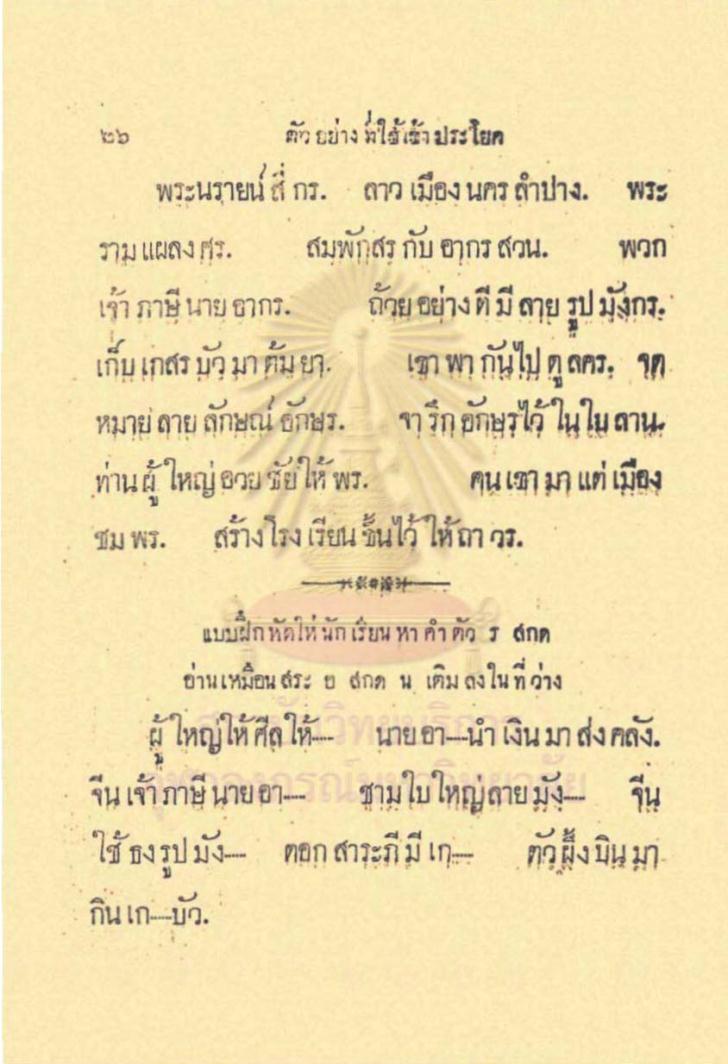 ๒๖ ตัว อย่าง ที่ใช้เข้า ประโยค
พระนรายน์ สี่ กร. ลาว เมือง นคร ลำปาง. พระ
ราม แผลง ศร. สมพักสร กับ อากร สวน. พวก
เจ้า ภาษี นาย อากร. ถ้วย อย่าง ดี มี ลาย รูป มังกร.
เก็บ เกสร บัว มา ต้ม ยา. เขา พา กันไป ดู ลคร. จด
หมาย ลาย ลักษณ์ อักษร. จา รึก อักษรไว้ ในใบ ลาน.
ท่าน ผู้ ใหญ่ อวย ชัย ให้ พร. คน เขา มา แต่ เมือง
ชุม พร. สร้าง โรง เรียน ขึ้นไว้ ให้ ถา วร.
แบบฝึก หัดให้ นัก เรียน หา คำ ตัว ร สกด
อ่านเหมือน สระ อ สกด น เติม ลงใน ที่ ว่าง
ผู้ ใหญ่ให้ ศีล ให้---- นาย อา----นำ เงิน มา ส่ง คลัง.
จีน เจ้า ภาษี นาย อา---- ชาม ใบ ใหญ่ ลาย มัง---- จีน
ใช้ ธง รูป มัง---- ดอก สาระภี มี เก---- ตัว ผึ้ง บิน มา
กิน เก----บัว.
สถาบันวิทยบริการ
จุฬาลงกรณ์มหาวิทยาลัย